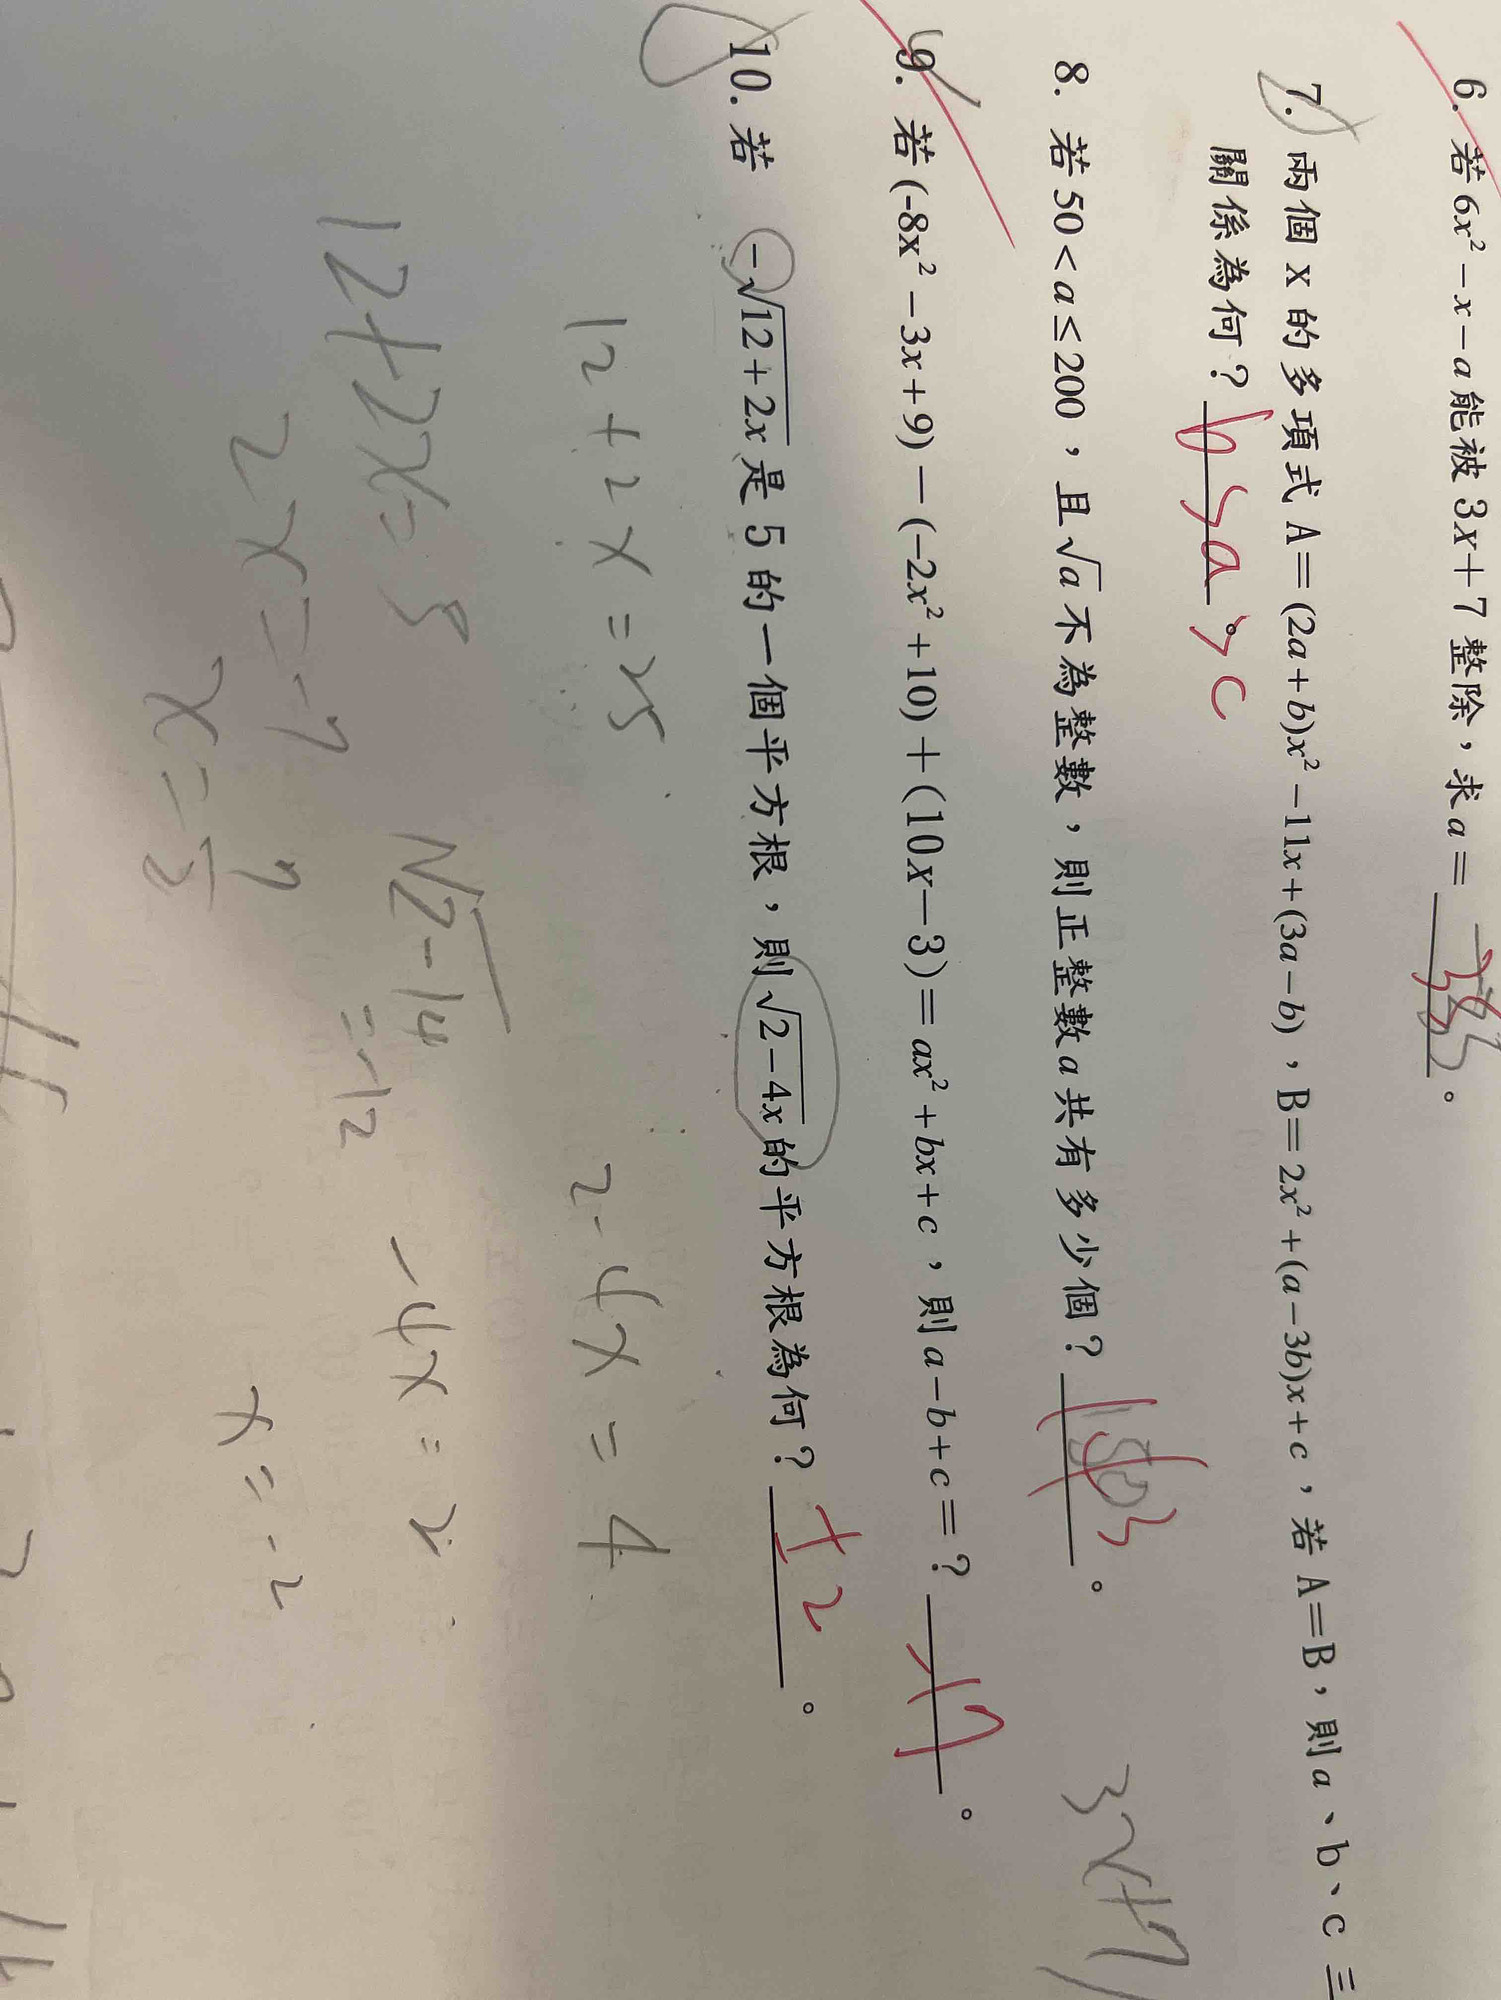 6. 若 6x² − x − a 能被 3x + 7 整除，求 a = ＿＿＿。
7. 兩個 x 的多項式 A＝(2a + b)x² − 11x + (3a − b)，B＝2x² + (a − 3b)x + c，若 A＝B，則 a、b、c 三
關係為何？ b > a > c 。
8. 若 50 < a ≤ 200，且 √a 不為整數，則正整數 a 共有多少個？ 143 。
9. 若 (-8x² − 3x + 9) − (−2x² + 10) + (10x − 3) = ax² + bx + c，則 a − b + c = ？ −17 。
3x+7
10. 若 −√(12 + 2x) 是 5 的一個平方根，則 √(2 − 4x) 的平方根為何？ ±2 。
12 + 2x = 25
2 - 4x = 4
12 + 2x = 5
√2-14
-4x = 2
2x = -7
= -12
x = -2
x = - 7/2